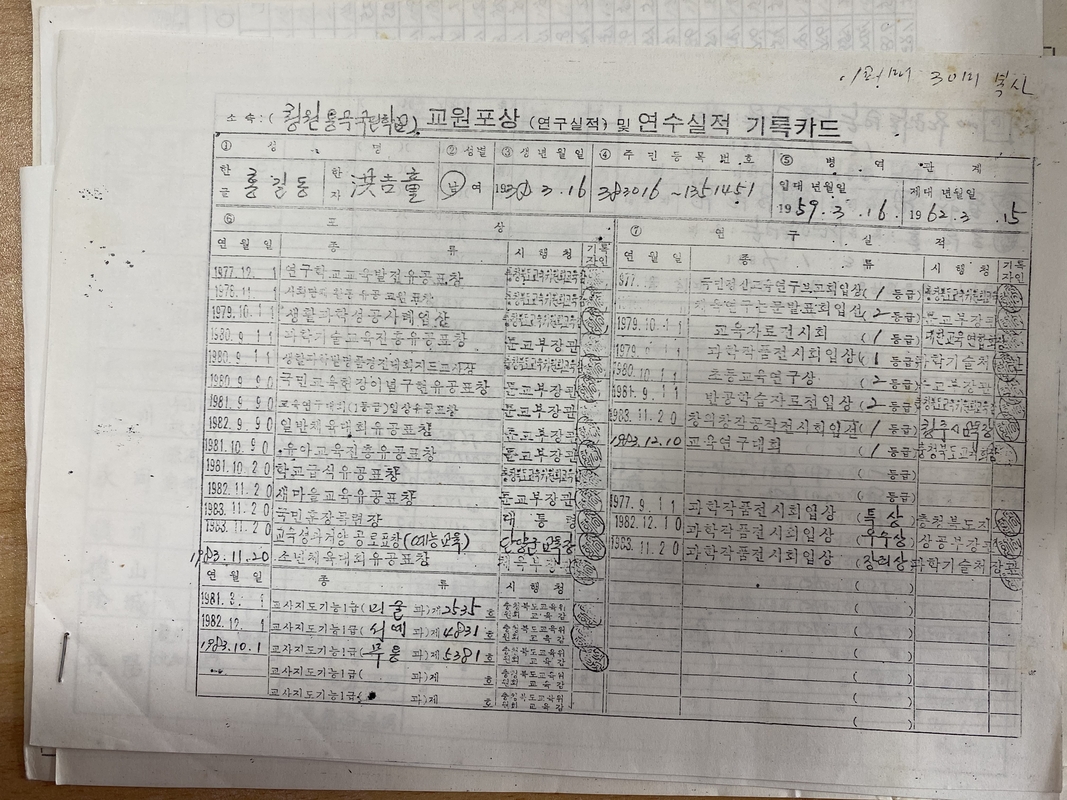 이런때 30매 복사
소속:( ) 교원포상 (연구실적) 및 연수실적 기록카드
① 성 명 ② 성별 ③ 생년월일 ④ 주민등록번호 ⑤ 병역관계
한글 홍길동 한자 洪吉童 남 여 3.16 383016~1351451 입대 년월일 1959.3.16. 제대 년월일 1962.3.15
⑥ 포 상 ⑦ 연 구 실 적
연월일 종 류 시행청 기록자인 연월일 종 류 시행청 기록자인
1977.12. 1 연구학교교육발전유공표창 충청북도교육위원회교육감 1977. 국민정신교육연구보고회입상(1등급)
1978.11. 1 사회단체 유공 교원 표창 충청북도교육위원회교육감 체육연구논문발표회입선(2등급) 문교부장관
1979.10.11 생활과학성공사례입상 충청북도교육위원회교육감 1979.10.11 교육자료전시회 (1등급) 대한교육연합회
1980.9.11 과학기술교육진흥유공표창 문교부장관 1979. 과학작품전시회입상(1등급) 과학기술처
1980.9.11 생활과학발명품경진대회지도교사상 충청북도교육위원회교육감 1980.10.11 초등교육연구상 (2등급) 문교부장관
1980.9.90 국민교육헌장이념구현유공표창 문교부장관 1981.9.11 반공학습자료전입상(2등급) 충청북도교육위원회교육감
1981.9.90 교육연구대회(1등급)입상유공표창 문교부장관 1983.11.20 창의창작공작전시회입상(1등급)
1982.9.90 일반체육대회유공표창 문교부장관 1983.12.10 교육연구대회 (1등급)
1981.10.90 유아교육진흥유공표창 문교부장관 ( 등급)
1981.10.20 학교급식유공표창 충청북도교육위원회교육감 ( 등급)
1982.11.20 새마을교육유공표창 문교부장관 1977.9.11 과학작품전시회입상 (특상) 충청북도지
1983.11.20 국민훈장목련장 대통령 1982.12.10 과학작품전시회입상 (우수상) 상공부장관
1983.11.20 교육성과거양 공로표창(예능교육) 단양군교육장 1983.11.20 과학작품전시회입상 (장려상) 과학기술처장관
1983.11.20 소년체육대회유공표창 체육부장관 ( )
연월일 종 류 시행청 ( )
1981.3. 1 교사지도기능1급(미술 과)제2535 호 충청북도교육위원회 교육감 ( )
1982.12.1 교사지도기능1급(서예 과)제4831 호 충청북도교육위원회 교육감 ( )
1983.10.1 교사지도기능1급(무용 과)제5381 호 충청북도교육위원회 교육감 ( )
교사지도기능1급( 과)제 호 충청북도교육위원회 교육감 ( )
교사지도기능1급( 과)제 호 충청북도교육위원회 교육감 ( )